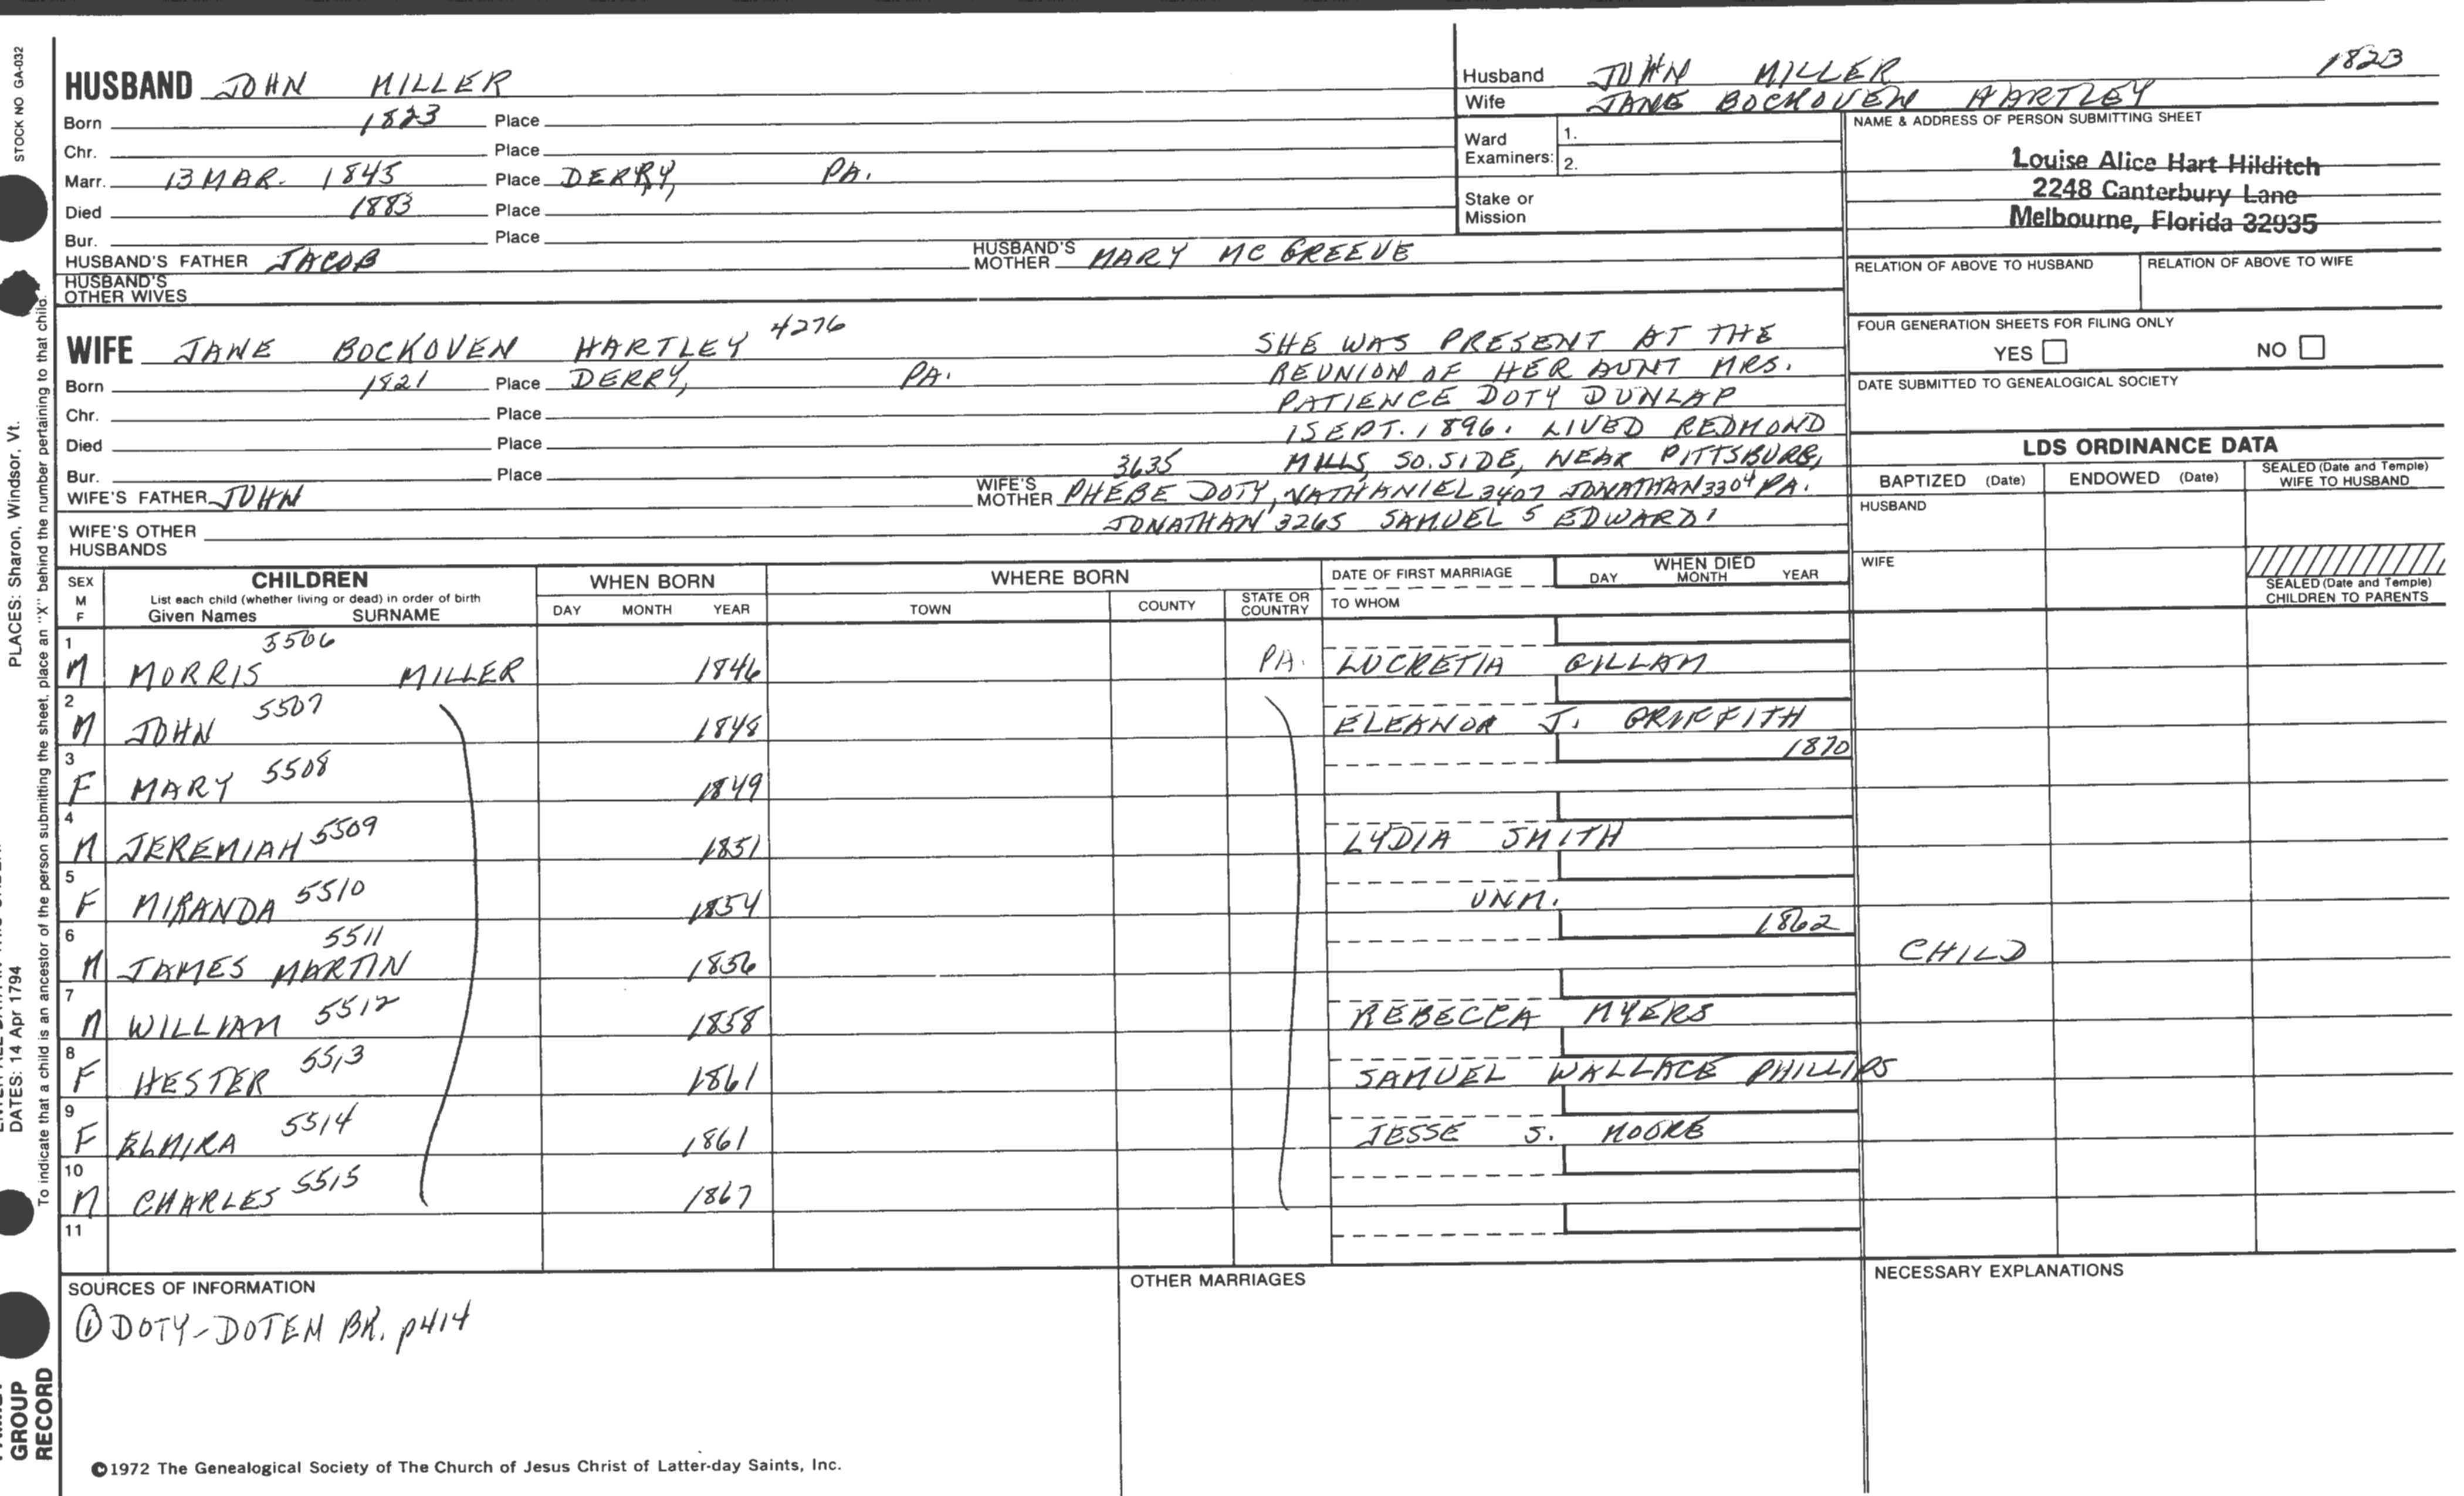 STOCK NO GA-032
HUSBAND JOHN MILLER
Born 1823 Place
Chr. Place
Marr. 13 MAR. 1845 Place DERRY, PA.
Died 1883 Place
Bur. Place
HUSBAND'S FATHER JACOB HUSBAND'S MOTHER MARY MC GREEVE
HUSBAND'S OTHER WIVES
Husband JOHN MILLER 1823
Wife JANE BOCKOVEN HARTLEY
Ward Examiners: 1.
2.
Stake or Mission
NAME & ADDRESS OF PERSON SUBMITTING SHEET
Louise Alice Hart Hilditch
2248 Canterbury Lane
Melbourne, Florida 32935
RELATION OF ABOVE TO HUSBAND RELATION OF ABOVE TO WIFE
FOUR GENERATION SHEETS FOR FILING ONLY
YES NO
DATE SUBMITTED TO GENEALOGICAL SOCIETY
WIFE JANE BOCKOVEN HARTLEY 4276
Born 1821 Place DERRY, PA.
Chr. Place
Died Place
Bur. Place
SHE WAS PRESENT AT THE
REUNION OF HER AUNT MRS.
PATIENCE DOTY DUNLAP
1 SEPT. 1896. LIVED REDMOND
MILLS, SO. SIDE, NEAR PITTSBURG,
WIFE'S FATHER JOHN WIFE'S MOTHER PHEBE DOTY, 3635 NATHANIEL 3407 JONATHAN 3304 PA.
JONATHAN 3265 SAMUEL 5 EDWARD 1
WIFE'S OTHER HUSBANDS
LDS ORDINANCE DATA
BAPTIZED (Date) ENDOWED (Date) SEALED (Date and Temple) WIFE TO HUSBAND
HUSBAND
WIFE
SEALED (Date and Temple) CHILDREN TO PARENTS
SEX M F CHILDREN WHEN BORN WHERE BORN DATE OF FIRST MARRIAGE WHEN DIED
List each child (whether living or dead) in order of birth
Given Names SURNAME DAY MONTH YEAR TOWN COUNTY STATE OR COUNTRY TO WHOM DAY MONTH YEAR
1 M MORRIS 5506 MILLER 1846 PA. LUCRETIA GILLAM
2 M JOHN 5507 1848 ELEANOR J. GRIFFITH
3 F MARY 5508 1849 1870
4 M JEREMIAH 5509 1851 LYDIA SMITH
5 F MIRANDA 5510 1854 UNM.
6 M JAMES MARTIN 5511 1856 1862 CHILD
7 M WILLIAM 5512 1858 REBECCA MYERS
8 F HESTER 5513 1861 SAMUEL WALLACE PHILLIPS
9 F ELMIRA 5514 1861 JESSE S. MOORE
10 M CHARLES 5515 1867
11
SOURCES OF INFORMATION
① DOTY-DOTEN BK. p414
OTHER MARRIAGES
NECESSARY EXPLANATIONS
©1972 The Genealogical Society of The Church of Jesus Christ of Latter-day Saints, Inc.
PLACES: Sharon, Windsor, Vt.
DATES: 14 Apr 1794
To indicate that a child is an ancestor of the person submitting the sheet, place an "X" behind the number pertaining to that child.
GROUP
RECORD